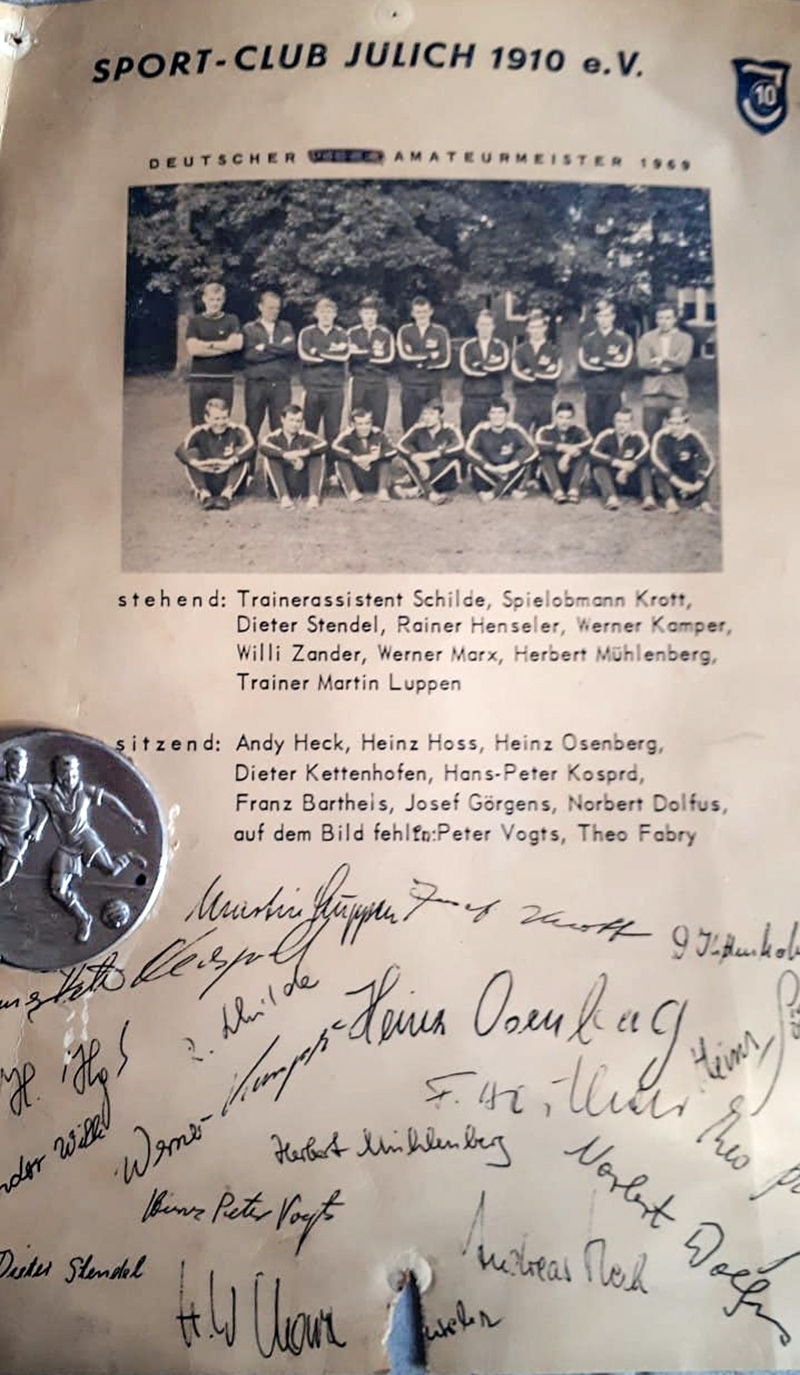 SPORT-CLUB JULICH 1910 e.V.
10
DEUTSCHER AMATEURMEISTER 1969
stehend: Trainerassistent Schilde, Spielobmann Krott,
Dieter Stendel, Rainer Henseler, Werner Kamper,
Willi Zander, Werner Marx, Herbert Mühlenberg,
Trainer Martin Luppen
sitzend: Andy Heck, Heinz Hoss, Heinz Osenberg,
Dieter Kettenhofen, Hans-Peter Kosprd,
Franz Bartheis, Josef Görgens, Norbert Dolfus,
auf dem Bild fehlfn:Peter Vogts, Theo Fabry
Martin Luppen
Heinz Osenberg
Heinz
Werner
Herbert Mühlenberg
Norbert
Peter Vogts
Dieter Stendel
Andreas Heck